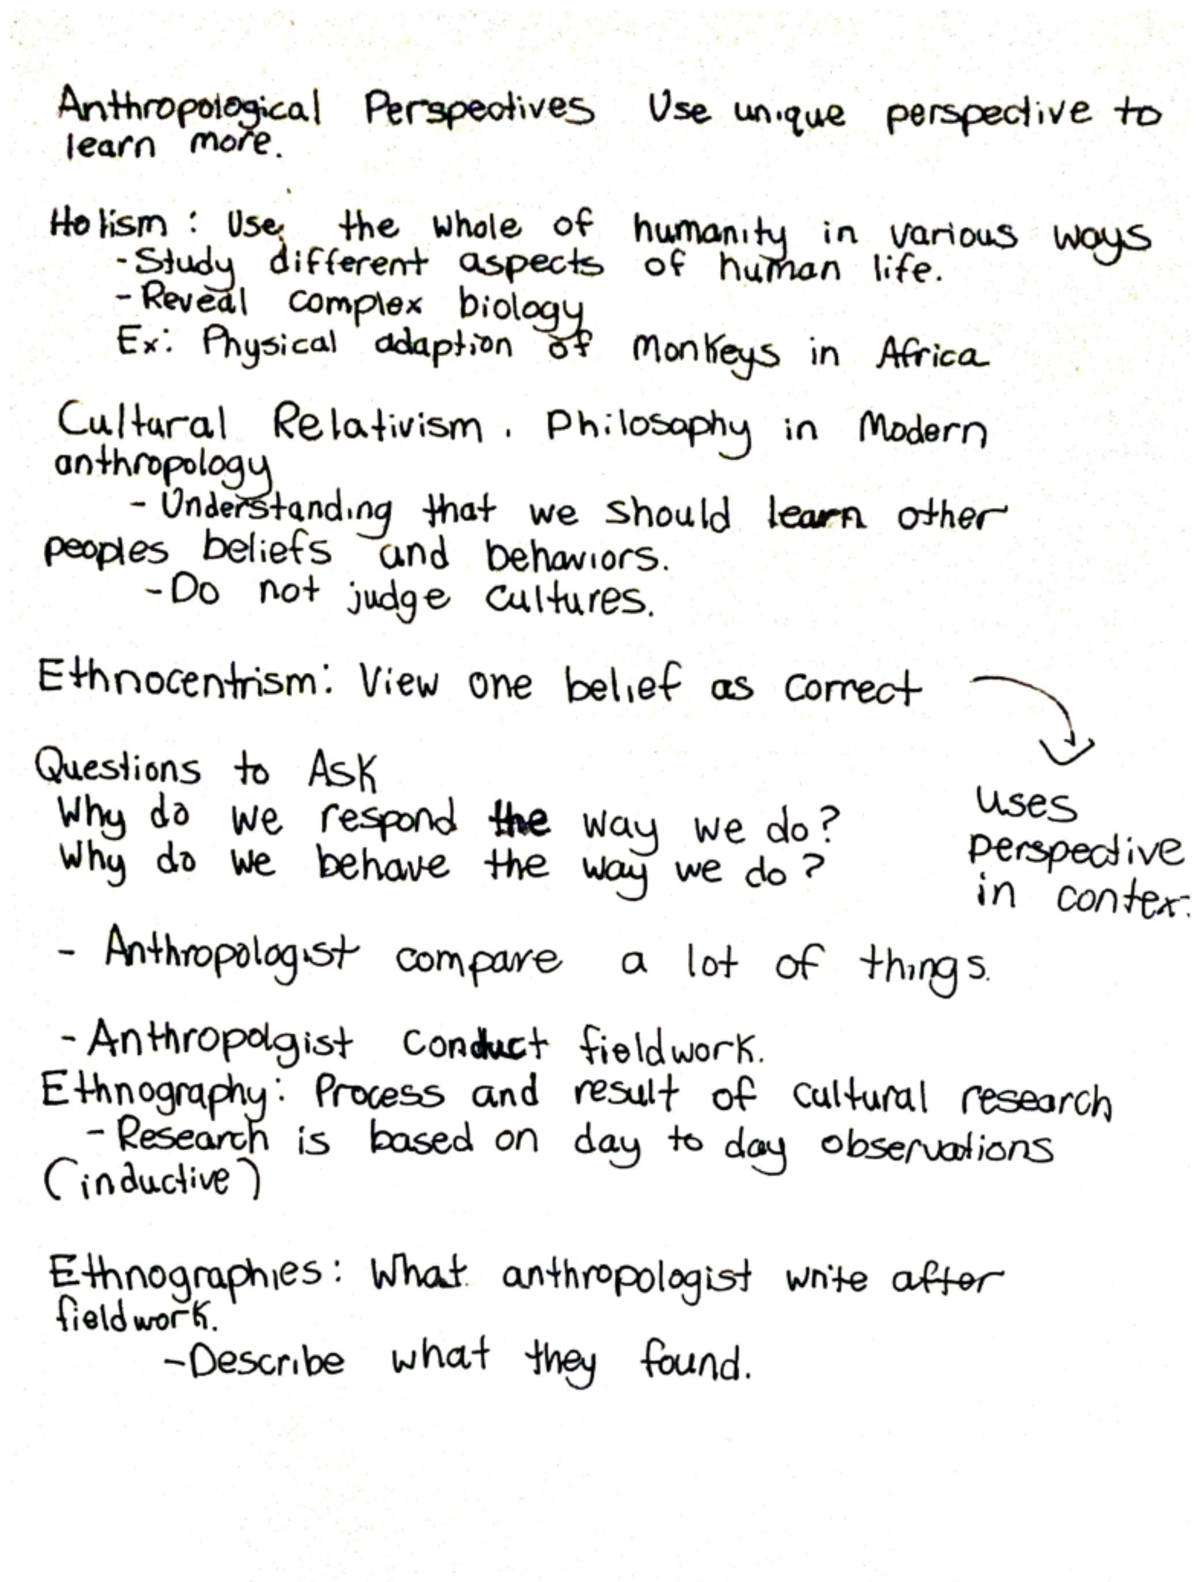 Anthropological Perspectives Use unique perspective to
learn more.
Holism: Use the whole of humanity in various ways
-Study different aspects of human life.
-Reveal complex biology
Ex: Physical adaption of Monkeys in Africa
Cultural Relativism. Philosophy in Modern
anthropology
- Understanding that we should learn other
peoples beliefs and behaviors.
-Do not judge cultures.
Ethnocentrism: View one belief as correct
Questions to Ask
Why do we respond the way we do?
Why do we behave the way we do?
uses
perspective
in contex.
- Anthropologist compare a lot of things.
-Anthropolgist conduct fieldwork.
Ethnography: Process and result of cultural research
-Research is based on day to day observations
(inductive)
Ethnographies: What anthropologist write after
fieldwork.
-Describe what they found.